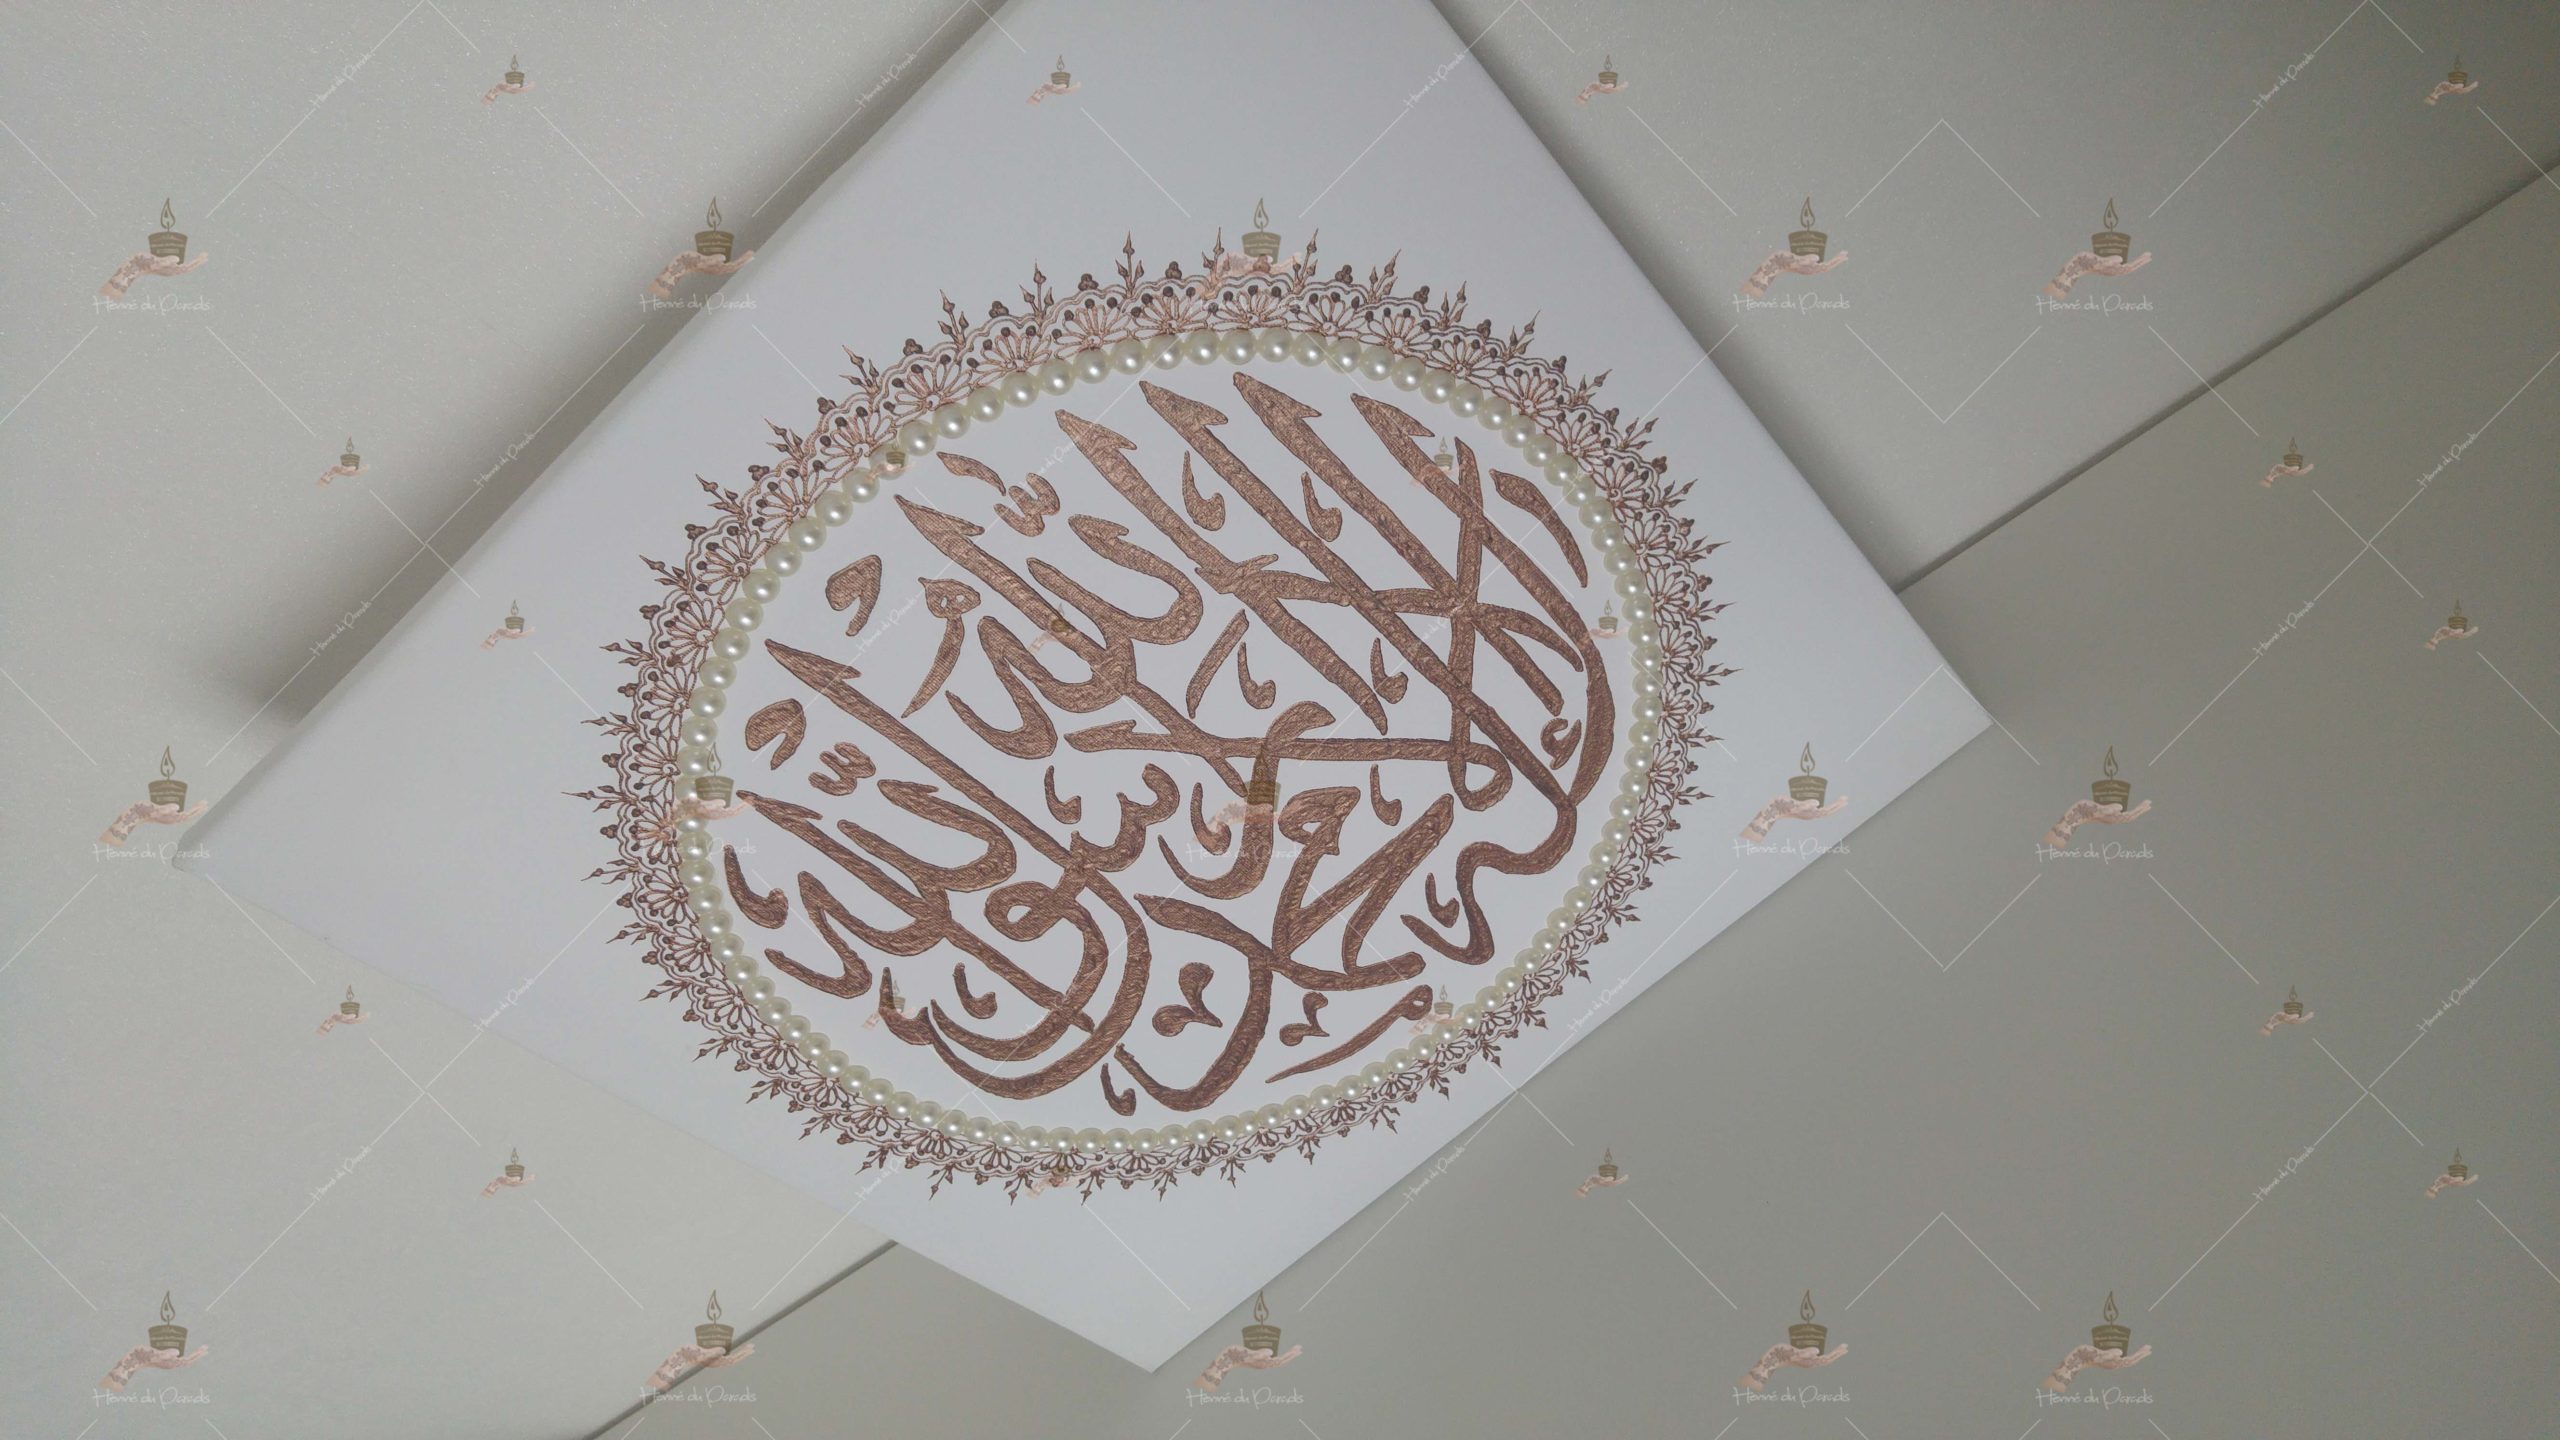 لا إله إلا الله
محمد رسول الله
Henné du Paradis